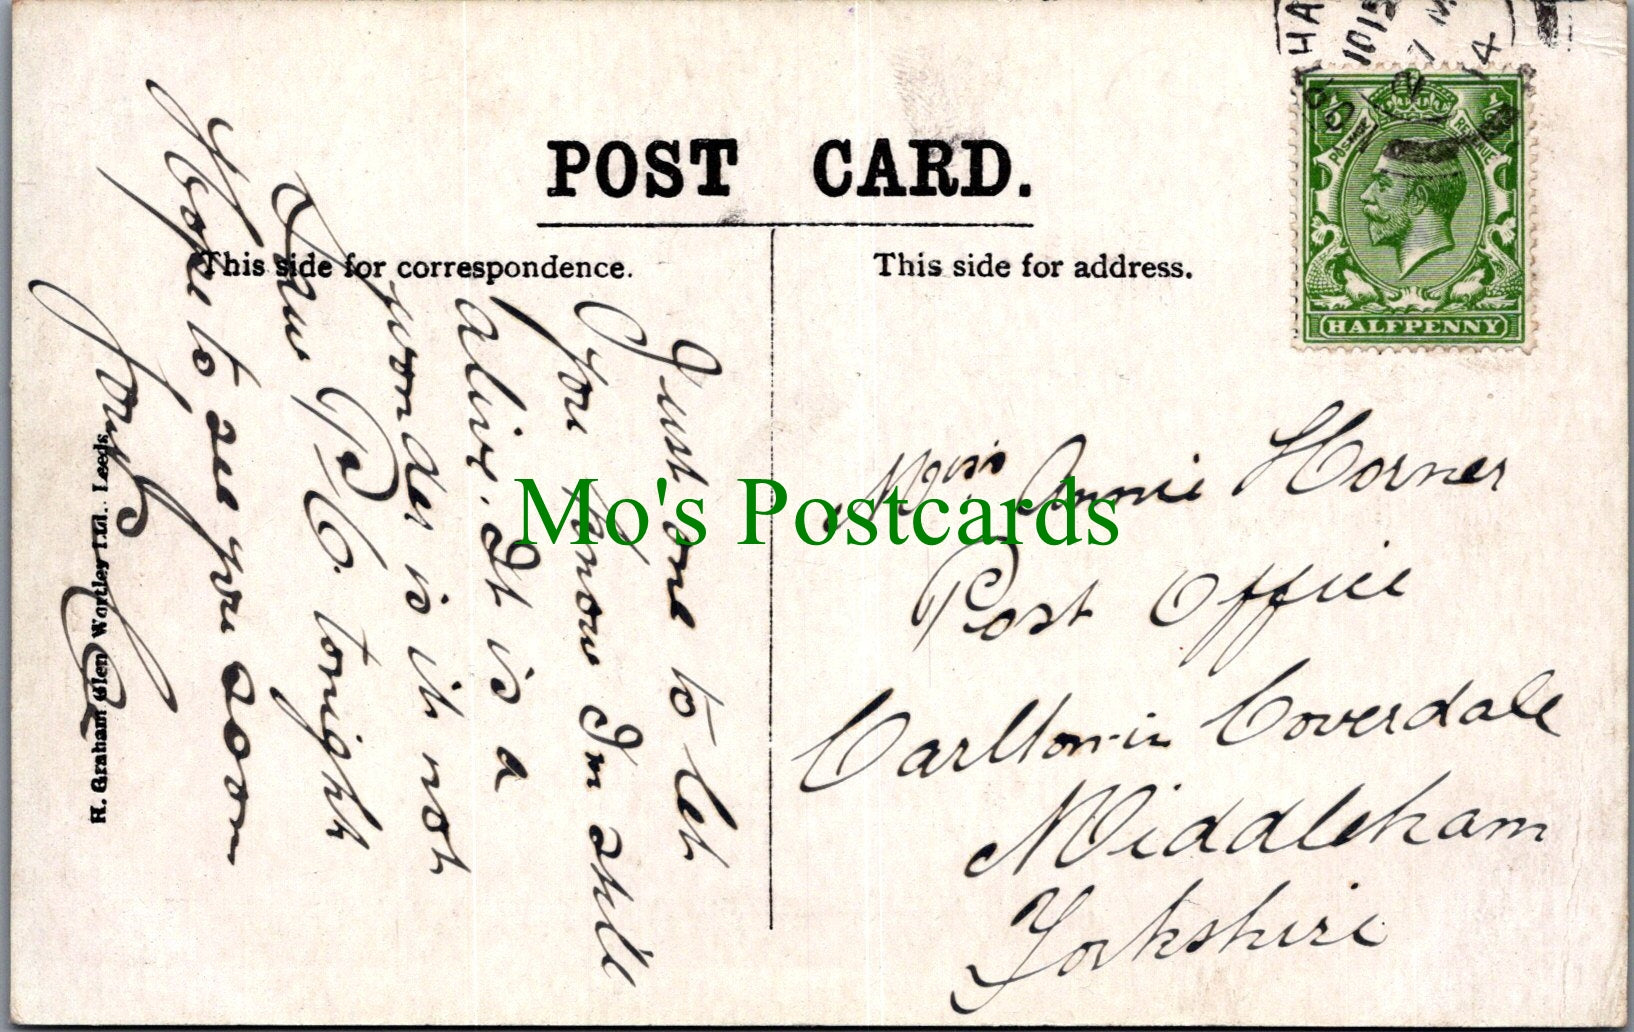 POST CARD.
This side for correspondence.
This side for address.
Just one to let
you know I'm still
alive. It is a
wonder is it not
Saw P.C. tonight
Hope to see you soon
H. Graham Glen Wortley Ltd., Leeds
Miss Annie Horner
Post Office
Carlton-in Coverdale
Middleham
Yorkshire
HA
1015
14
POSTAGE REVENUE
HALFPENNY
Mo's Postcards